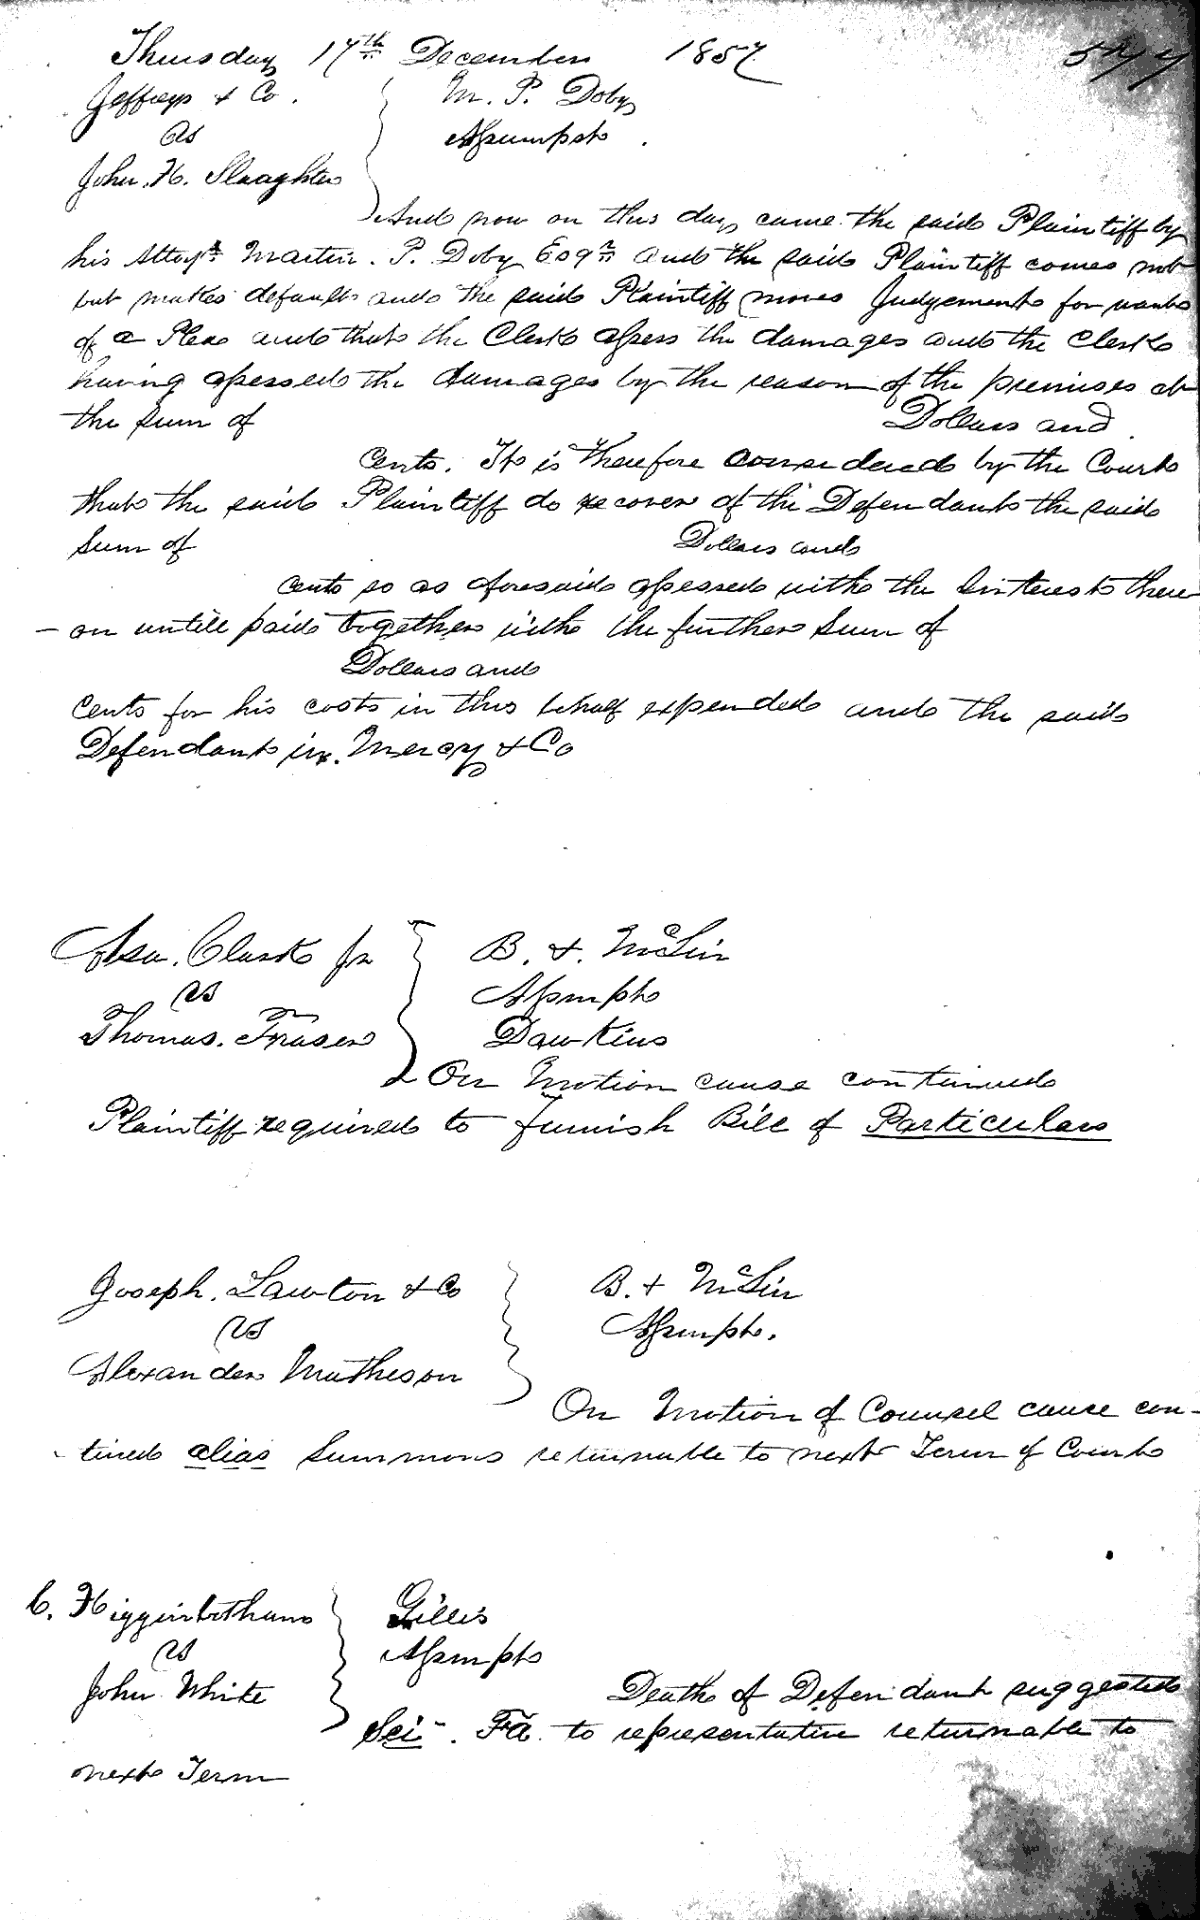 Thursday 17th December 1857.
Jeffreys & Co. M. P. Doby
vs Assumpst.
John. H. Slaughter
And now on this day came the said Plaintiff by
his Attoy Martin. P. Doby Esqr and the said Plaintiff comes not
but makes default and the said Plaintiff moves Judgement for want
of a Plea and that the Clerk assess the damages and the Clerk
having assessed the damages by the reason of the premises at
the sum of Dollars and
Cents. It is therefore considered by the Court
that the said Plaintiff do recover of the Defendant the said
Sum of Dollars and
Cents so as aforesaid assessed with the Interest there
- on untill paid together with the further Sum of
Dollars and
Cents for his costs in this behalf expended and the said
Defendant in. Mercy & Co
Asa. Clark Jr B. & McLin
vs Assmpt
Thomas. Fraser Dawkins
On Motion cause continued
Plaintiff required to furnish Bill of Particulars
Joseph. Lawton & Co B. & McLin
vs Assmpt.
Alexander Matheson
On Motion of Counsel cause con-
- tined alias Summons returnable to next Term of Court
C. Higginbotham Gillis
vs Assmpt
John White Death of Defendant suggested
Sci - . Fa. to representative returnable to
next Term